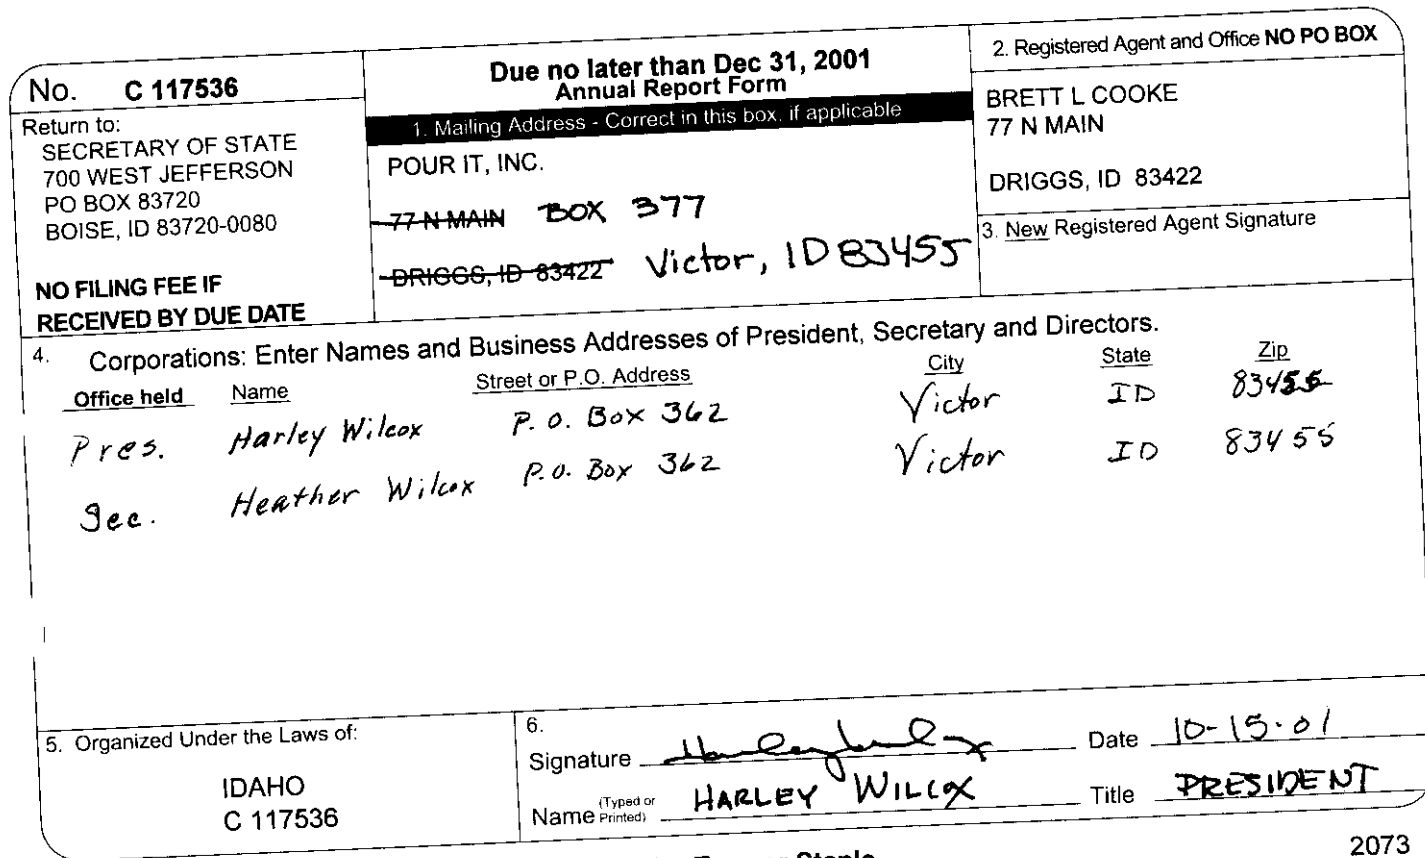 No. C 117536
Return to:
SECRETARY OF STATE
700 WEST JEFFERSON
PO BOX 83720
BOISE, ID 83720-0080
NO FILING FEE IF
RECEIVED BY DUE DATE
Due no later than Dec 31, 2001
Annual Report Form
1. Mailing Address - Correct in this box, if applicable
POUR IT, INC.
77 N MAIN BOX 377
DRIGGS, ID 83422 Victor, ID 83455
2. Registered Agent and Office NO PO BOX
BRETT L COOKE
77 N MAIN
DRIGGS, ID 83422
3. New Registered Agent Signature
4. Corporations: Enter Names and Business Addresses of President, Secretary and Directors.
Office held Name Street or P.O. Address City State Zip
Pres. Harley Wilcox P.O. Box 362 Victor ID 83455
Sec. Heather Wilcox P.O. Box 362 Victor ID 83455
5. Organized Under the Laws of:
IDAHO
C 117536
6.
Signature Harley Wilcox Date 10-15-01
Name (Typed or Printed) HARLEY WILCOX Title PRESIDENT
2073